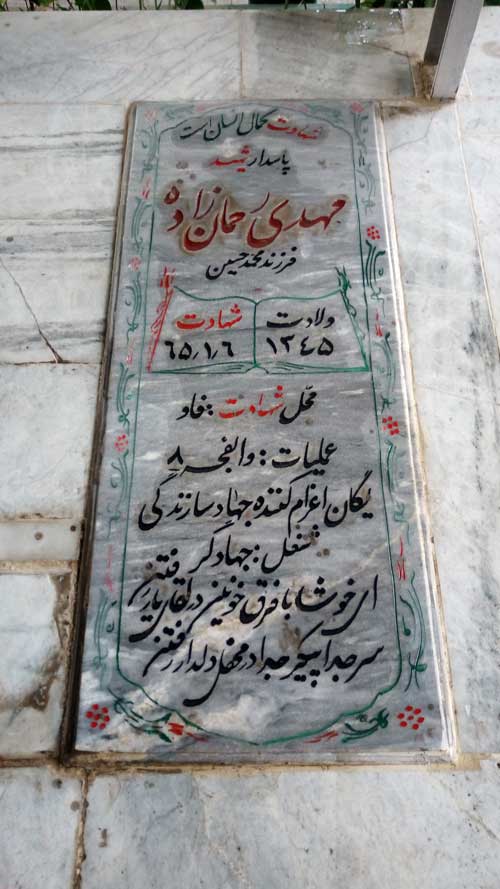 شهادت کمال انسان است
پاسدار شهید
مهدی رحمان زاده
فرزند محمد حسین
ولادت
۱۳٤۵
شهادت
۶۵/۱/۶
محل شهادت : فاو
عملیات : والفجر ۸
یگان اعزام کننده جهاد سازندگی
شغل : جهادگر
ای خوشا با فرق خونین در لقای یار رفتن
سر جدا پیکر جدا در محفل دلدار رفتن